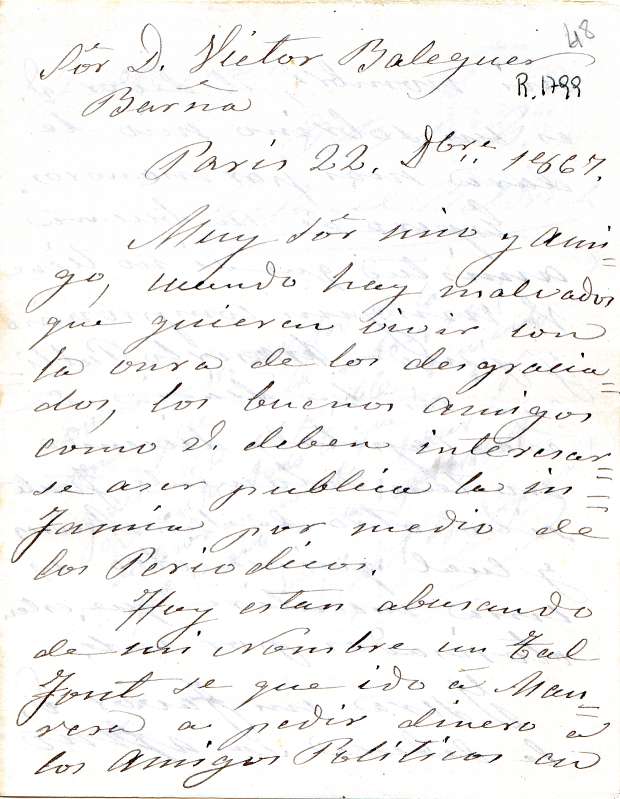 48
Sór D. Victor Balaguer
R. 1799
Barña
Paris 22. Dbre.. 1867.
Muy Sór mio y ami=
go, cuando hay malvados
que quieren vivir con
la onra de los desgracia=
dos, los buenos amigos
como V. deben interesar=
se aser publica la in=
famia por medio de
los Periodicos.
Hoy estan abusando
de mi Nombre un tal
Font se que ido á Man=
resa a pedir dinero á
los amigos Politicos en